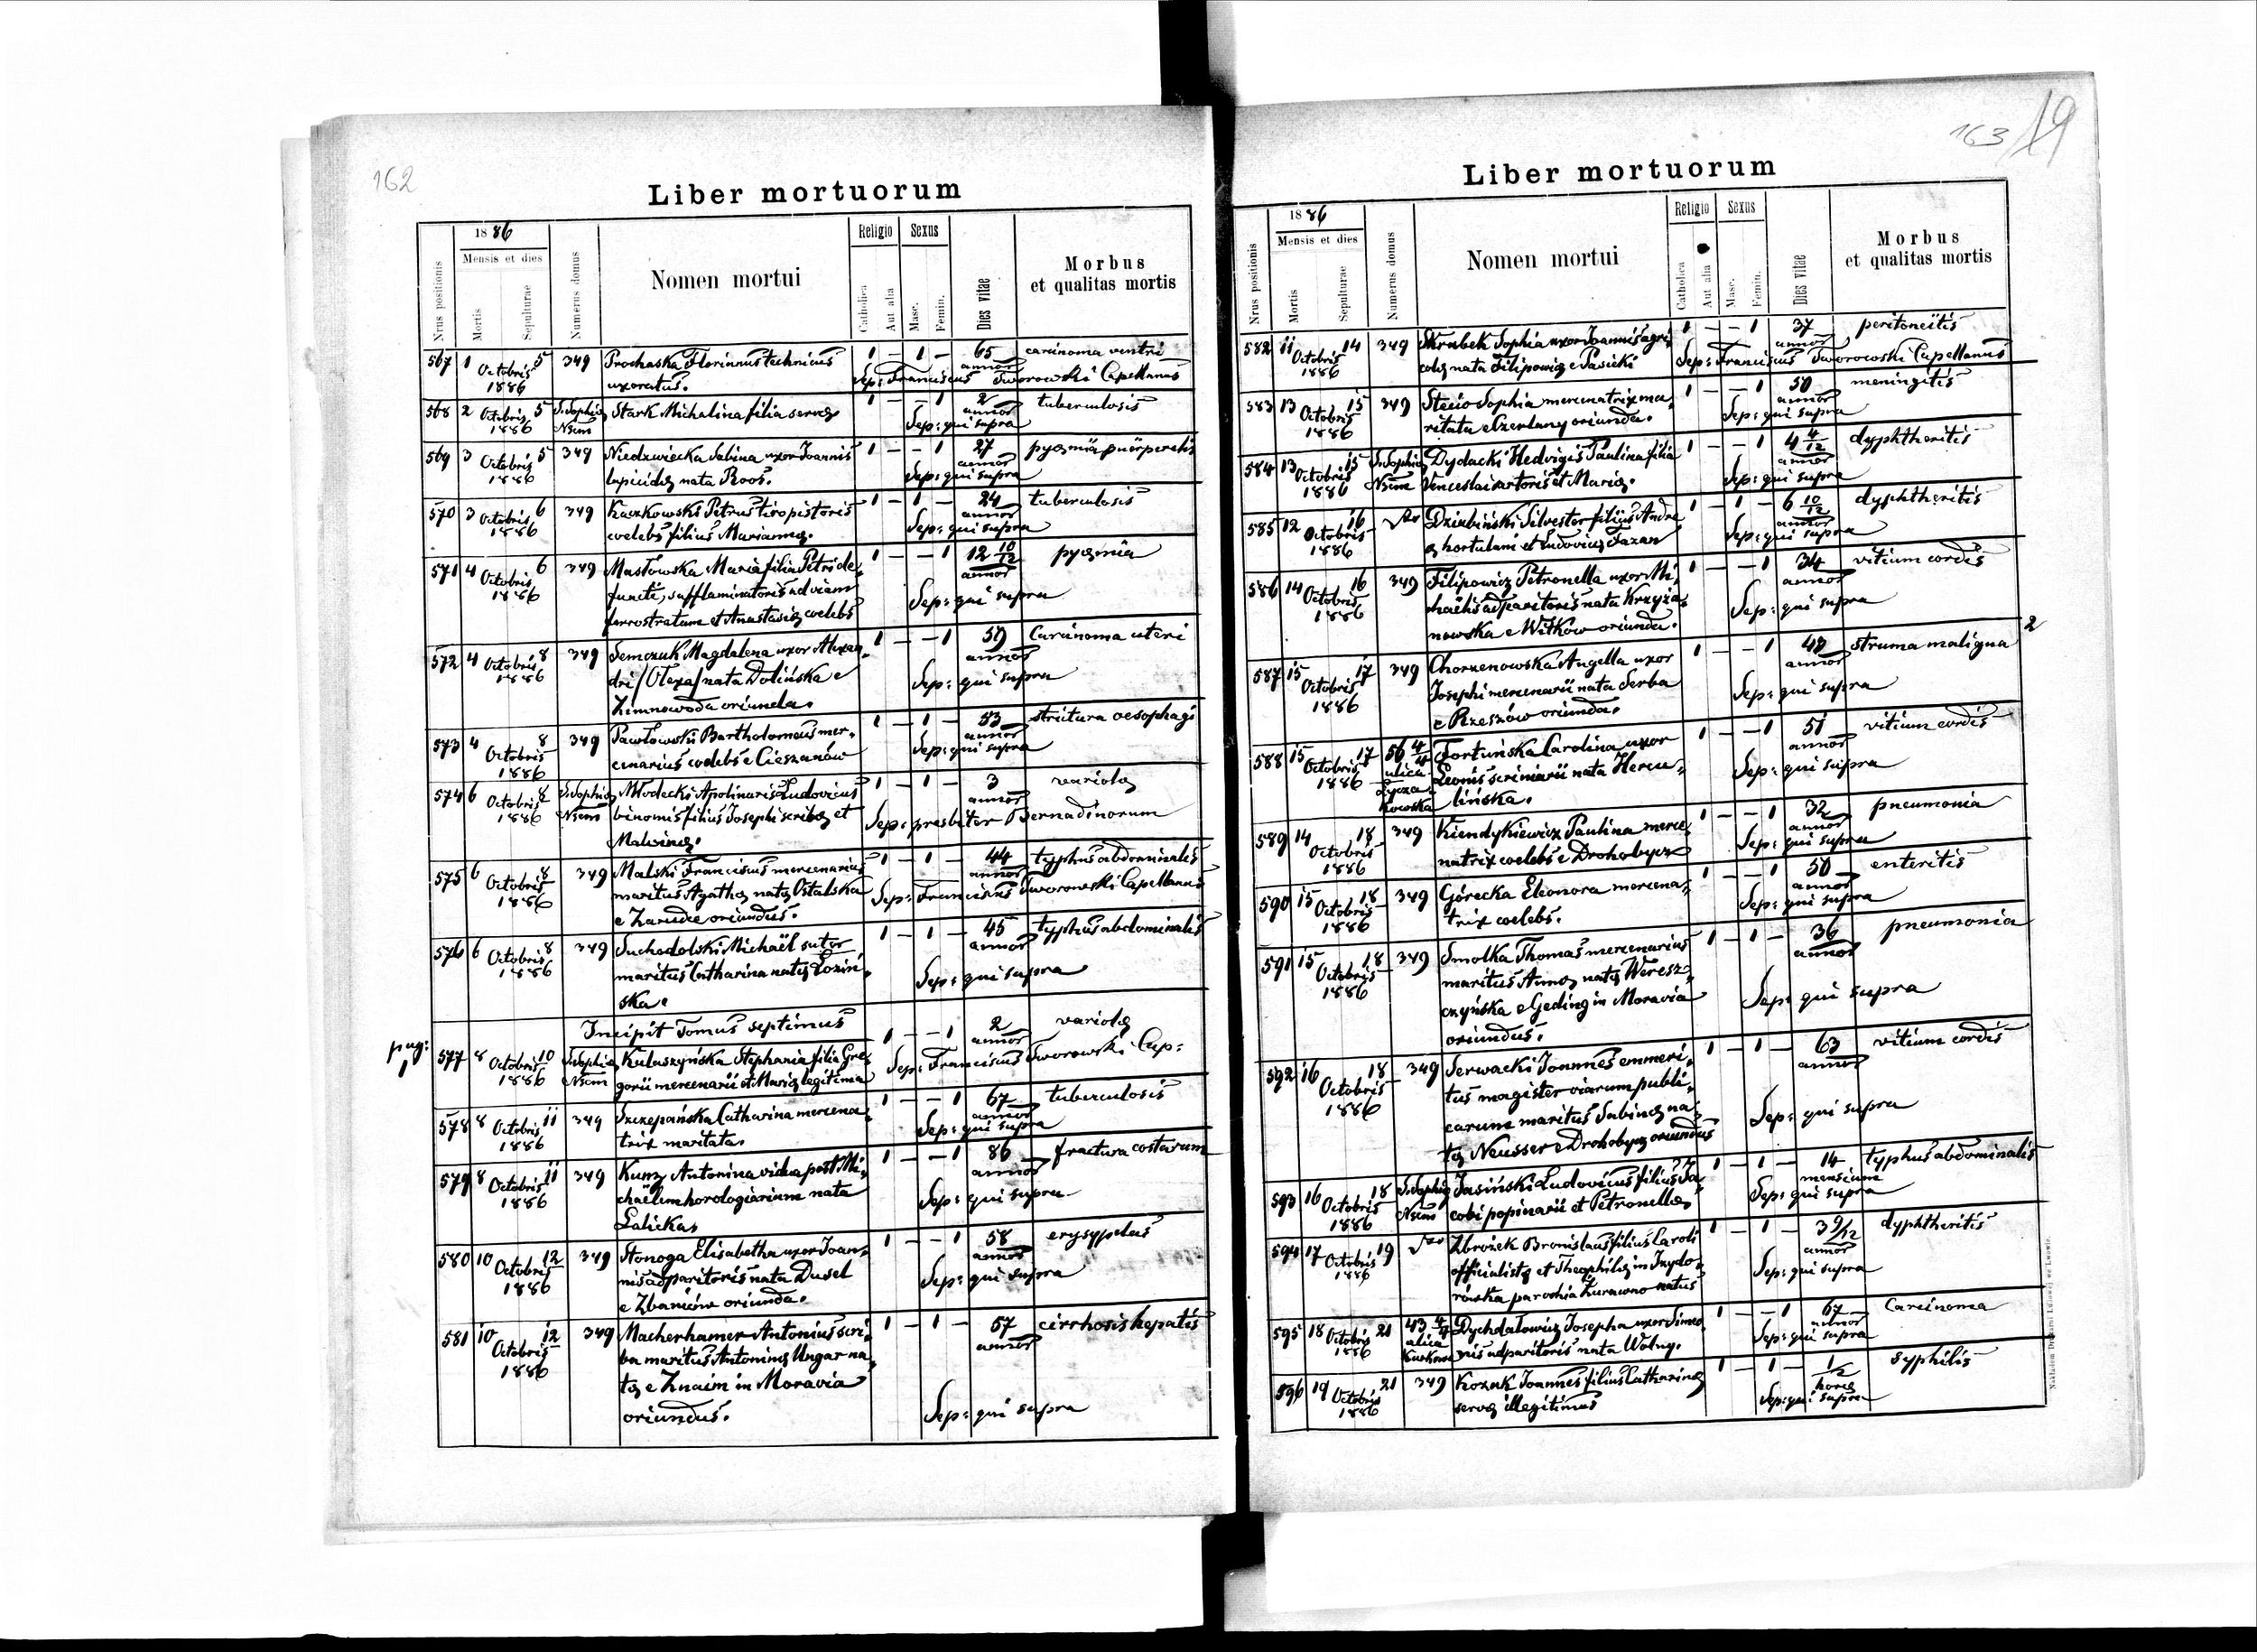 162
Liber mortuorum
Nrus positionis
1886
Mensis et dies
Mortis
Sepulturae
Numerus domus
Nomen mortui
Religio
Catholica
Aut alia
Sexus
Masc.
Femin.
Dies vitae
Morbus
et qualitas mortis
567 1 Octobris 5 349 Prochaska Florianus technicus 1 – 1 – 65 carcinoma ventri
1886 uxoratus. annor Sep: Franciscus Tworowski Capellanus
568 2 Octobris 5 S. Sophia Stark Michalina filia servae 1 – – 1 2 tuberculosis
1886 Nsum annor Sep: qui supra
569 3 Octobris 5 349 Niedzwiecka Sabina uxor Joannis 1 – – 1 27 pyaemia puerperalis
1886 lapicidae nata Roos. annor Sep: qui supra
570 3 Octobris 6 349 Kaczkowski Petrus tiro pistoris 1 – 1 – 24 tuberculosis
1886 coelebs filius Mariannae. annor Sep: qui supra
571 4 Octobris 6 349 Masłowska Maria filia Petri de, 1 – – 1 12 10/12 pyaemia
1886 functi, sufflaminatoris ad viam annor
ferrostratam et Anastasiae coelebs Sep: qui supra
572 4 Octobris 8 349 Semczuk Magdalena uxor Alexan, 1 – – 1 59 Carcinoma uteri
1886 dri /Olexa/ nata Dolińska e annor
Zimnowoda oriunda. Sep: qui supra
573 4 Octobris 8 349 Pawłowski Bartholomeus mer, 1 – 1 – 53 strictura oesophagi
1886 cenarius coelebs e Cieszanów annor Sep: qui supra
574 6 Octobris 8 S. Sophia Młodecki Apolinaris Ludovicus 1 – 1 – 3 variola
1886 Nsum binomis filius Josephi scribae et annor
Malvinae. Sep: presbiter Bernadinorum
575 6 Octobris 8 349 Malski Franciscus mercenarius 1 – 1 – 44 typhus abdominalis
1886 maritus Agathae natae Ostalska annor
e Zarudce oriundus. Sep: Franciscus Tworowski Capellanus
576 6 Octobris 8 349 Suchodolski Michaël sutor 1 – 1 – 45 typhus abdominalis
1886 maritus Catharina natae Łoziń, annor
ska. Sep: qui supra
Incipit Tomus septimus
pag: 1
577 8 Octobris 10 S. Sophia Kuluszyńska Stephania filia Gre, 1 – – 1 2 variola
1886 Nsum gorii mercenarii et Mariae legitima annor Sep: Franciscus Tworowski Cap:
578 8 Octobris 11 349 Szczepańska Catharina mercena, 1 – – 1 67 tuberculosis
1886 trix maritata. annor Sep: qui supra
579 8 Octobris 11 349 Kunz Antonina vidua post Mi, 1 – – 1 86 fractura costarum
1886 chaëlem horologiarium nata annor
Lalicka Sep: qui supra
580 10 Octobris 12 349 Stonoga Elisabetha uxor Joan, 1 – – 1 58 erysypelas
1886 nis adparitoris nata Dusel annor
e Zbaniów oriunda. Sep: qui supra
581 10 Octobris 12 349 Macherhamer Antonius scri, 1 – 1 – 57 cirrhosis hepatis
1886 ba maritus Antoninae Ungar na, annor
tae e Znaim in Moravia
oriundus. Sep: qui supra
163 19
Liber mortuorum
Nrus positionis
1886
Mensis et dies
Mortis
Sepulturae
Numerus domus
Nomen mortui
Religio
Catholica
Aut alia
Sexus
Masc.
Femin.
Dies vitae
Morbus
et qualitas mortis
582 11 Octobris 14 349 Skrubek Sophia uxor Joannis agri, 1 – – 1 37 peritoneitis
1886 colae nata Filipowicz e Pasieki annor Sep: Franciscus Tworowski Capellanus
583 13 Octobris 15 349 Stecio Sophia mercenatrix ma, 1 – – 1 50 meningitis
1886 ritata e Czerlany oriunda. annor Sep: qui supra
584 13 Octobris 15 S. Sophia Dydacki Hedvigis Paulina filia 1 – – 1 4 4/12 dyphtheritis
1886 Nsum Venceslai sartoris et Mariae. annor Sep: qui supra
585 12 Octobris 16 Dziubiński Silvester filius Andre 1 – 1 – 6 10/12 dyphtheritis
1886 ae hortulani et Ludovicae Fazan annor Sep: qui supra
586 14 Octobris 16 349 Filipowicz Petronella uxor Mi, 1 – – 1 34 vitium cordis
1886 chaëlis adparitoris nata Krzyża, annor
nowska e Witkow oriunda. Sep: qui supra
587 15 Octobris 17 349 Chorzenowska Angella uxor 1 – – 1 48 struma maligna 2
1886 Josephi mercenarii nata Serba annor
e Rzeszów oriunda. Sep: qui supra
588 15 Octobris 17 56 4/4 Fortuńska Carolina uxor 1 – – 1 51 vitium cordis
1886 ulica Leonis scriniarii nata Hercu, annor
Łycza kowska lińska. Sep: qui supra
589 14 Octobris 18 349 Kiendykiewicz Paulina merce, 1 – – 1 32 pneumonia
1886 natrix coelebs e Drohobycz annor Sep: qui supra
590 15 Octobris 18 349 Górecka Eleonora mercena, 1 – – 1 50 enteritis
1886 trix coelebs. annor Sep: qui supra
591 15 Octobris 18 349 Smolka Thomas mercenarius 1 – 1 – 36 pneumonia
1886 maritus Annae natae Weresz, annor
czyńska e Geding in Moravia
oriundus. Sep: qui supra
592 16 Octobris 18 349 Serwacki Joannes emmeri, 1 – 1 – 63 vitium cordis
1886 tus magister viarum publi, annor
carum maritus Sabinae na,
tae Neusser e Drohobycz oriundus Sep: qui supra
593 16 Octobris 18 S. Sophia Jasiński Ludovicus filius Ja, 1 – 1 – 14 typhus abdominalis
1886 Nsum cobi popinarii et Petronellae mensium Sep: qui supra
594 17 Octobris 19 Zbrożek Bronislaus filius Caroli 1 – 1 – 3 9/12 dyphtheritis
1886 officialistae et Theophilae in Izydo, annor
rówka parochia Żurawno natus Sep: qui supra
595 18 Octobris 21 43 4/4 Dychdałowicz Josepha uxor Simeo, 1 – – 1 67 Carcinoma
1886 ulica Kurkowa nis adparitoris nata Wolny. annor Sep: qui supra
596 19 Octobris 21 349 Kozak Joannes filius Catharinae 1 – 1 – 1/2 syphilis
1886 servae illegitimus horae Sep: qui supra